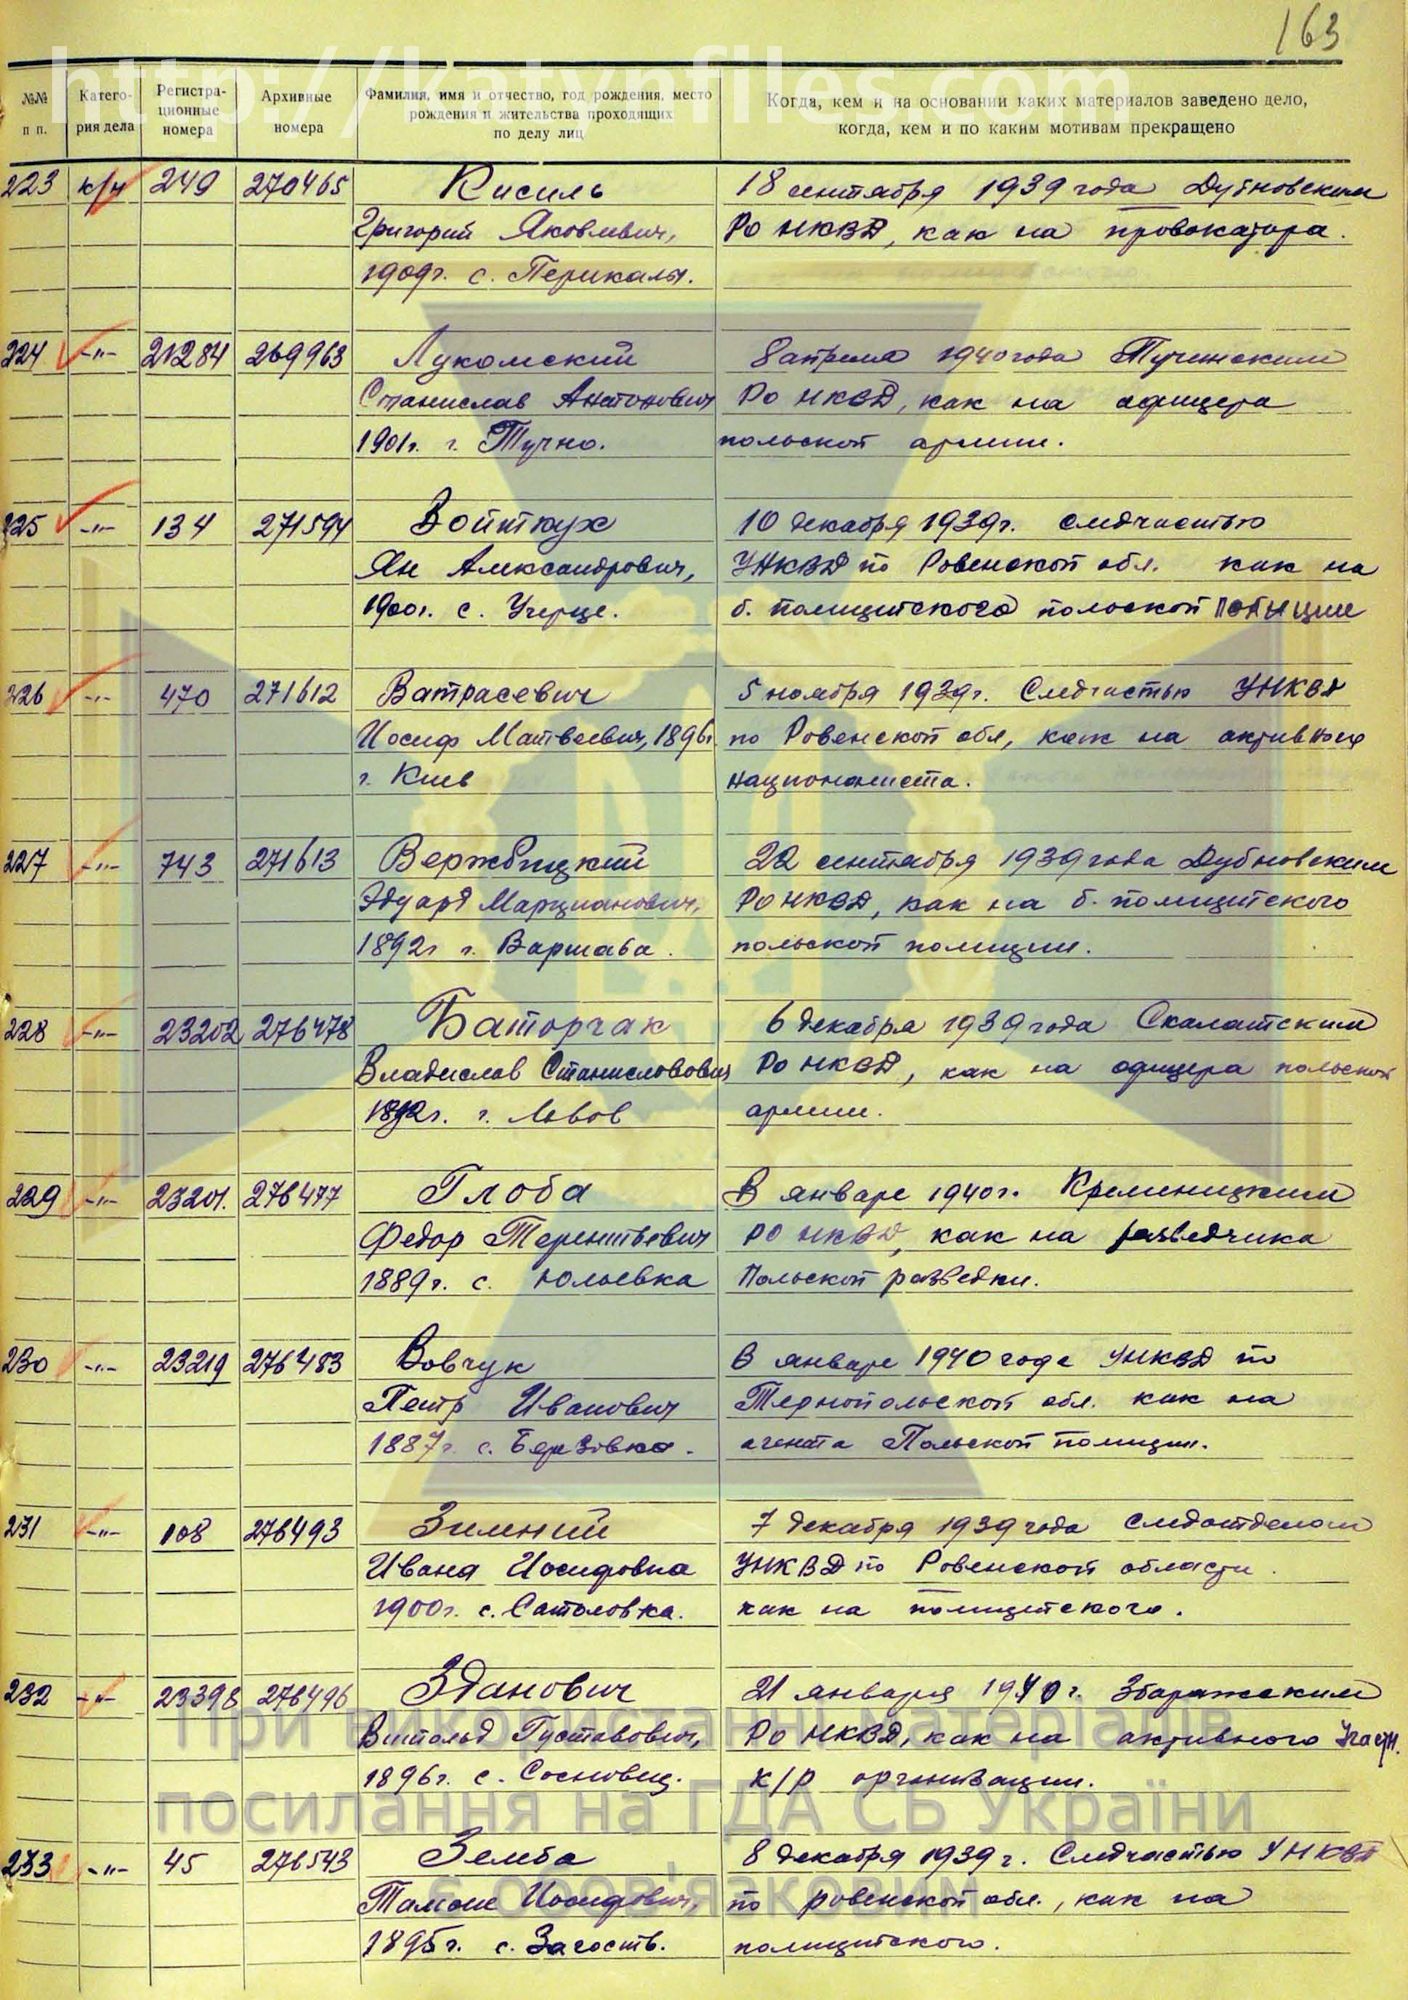 163
http://katynfiles.com
№№ п п.
Катего- рия дела
Регистра- ционные номера
Архивные номера
Фамилия, имя и отчество, год рождения, место рождения и жительства проходящих по делу лиц
Когда, кем и на основании каких материалов заведено дело, когда, кем и по каким мотивам прекращено
223 к/р 249 270465 Кисиль 18 сентября 1939 года Дубновским
Григорий Яковлевич, РО НКВД, как на провокатора.
1909г. с. Перикалы.
224 -"- 21284 269963 Лукомский 8 апреля 1940 года Тучинским
Станислав Анатонович РО НКВД, как на офицера
1901г. г. Тучно. польской армии.
225 -"- 134 271594 Войткух 10 декабря 1939г. следчастью
Ян Александрович, УНКВД по Ровенской обл. как на
1900г. с. Угерце. б. полицитского польской полиции
226 -"- 470 271612 Ватрасевич 5 ноября 1939г. Следчастью УНКВД
Иосиф Матвеевич, 1896г. по Ровенской обл, как на активного
г. Киев националиста.
227 -"- 743 271613 Вержбицкий 22 сентября 1939 года Дубновским
Эдуард Марцианович, РО НКВД, как на б. полицитского
1892г г. Варшава. польской полиции.
228 -"- 23202 276478 Баторчак 6 декабря 1939 года Скалатским
Владислав Станиславович РО НКВД, как на офицера польской
1892г. г. Львов армии.
229 -"- 23201. 276477 Глоба В январе 1940г. Кременицким
Федор Терентьевич РО НКВД, как на разведчика
1889г. с. Юльевка Польской разведки.
230 -"- 23219 276483 Вовчук В январе 1940 года УНКВД по
Петр Иванович Тернопольской обл. как на
1887г. с. Березовка. агента Польской полиции.
231 -"- 108 276493 Зимний 7 декабря 1939 года следотделом
Ивана Иосифовна УНКВД по Ровенской области.
1900г. с. Сатоловка. как на полицитского.
232 -"- 23398 276496 Зданович 21 января 1940г. Збаражским
Витольд Густавович, РО НКВД, как на активного участн.
1896г. с. Сосновец. к/р организации.
233 -"- 45 276543 Земба 8 декабря 1939г. Следчастью УНКВД
Иосифович, по ровенской обл., как на
1895г. с. Загоств. полицитского.
При використанні матеріалів
посилання на ГДА СБ України
є обов'язковим